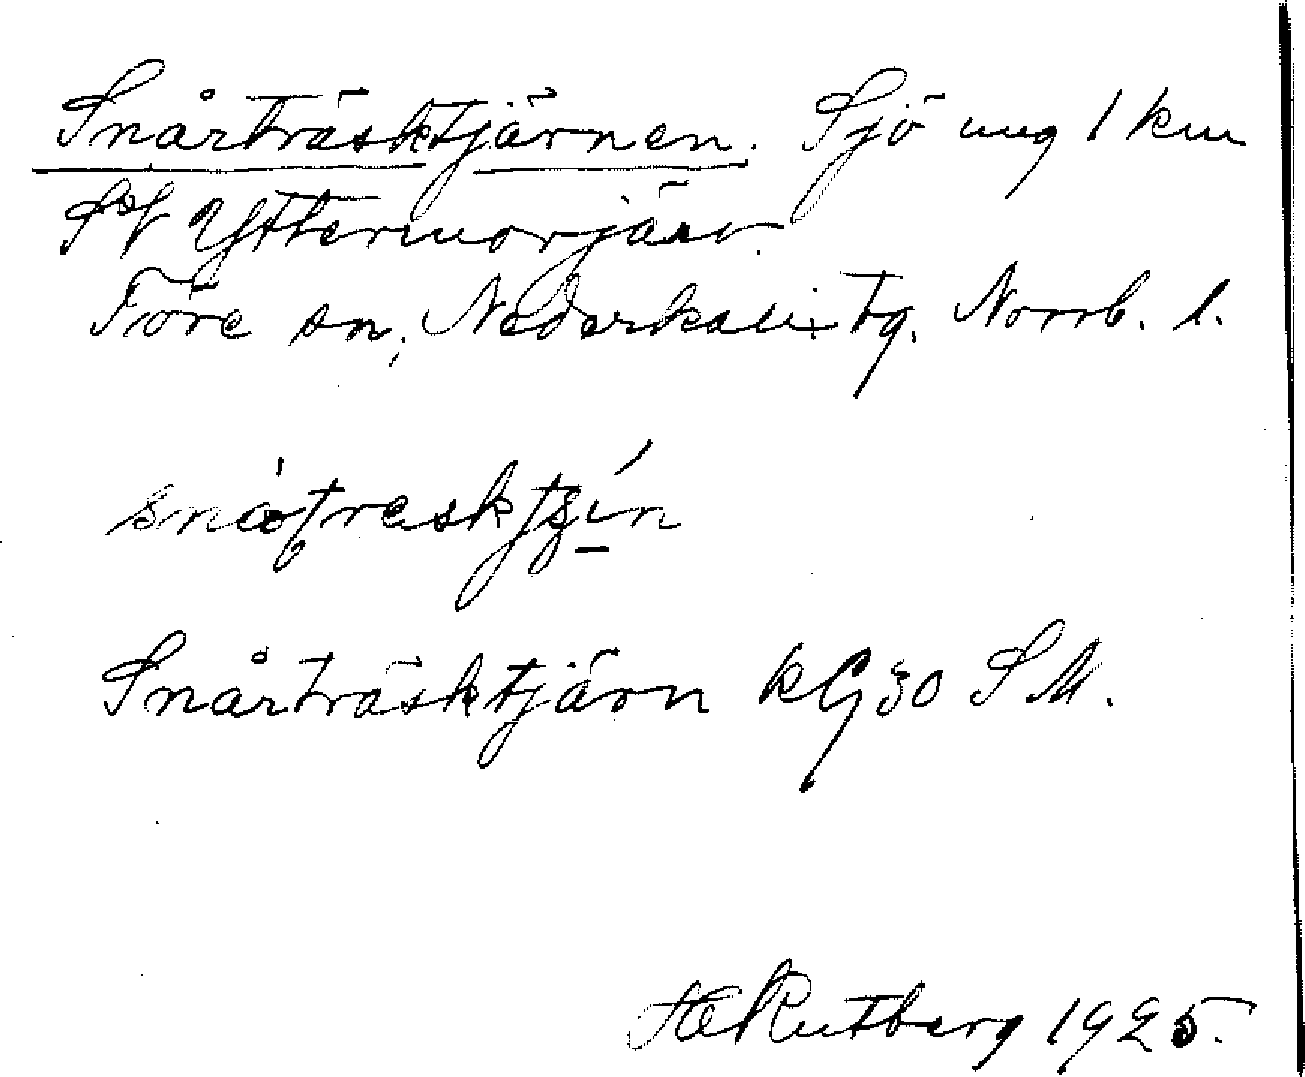 Snårträsktjärnen. Sjö ung 1 km
SV Yttermorjärv.
Töre sn, Nederkalix tg. Norrb. l.
Snårträsktjärn kG30 SM.
H Rutberg 1925.